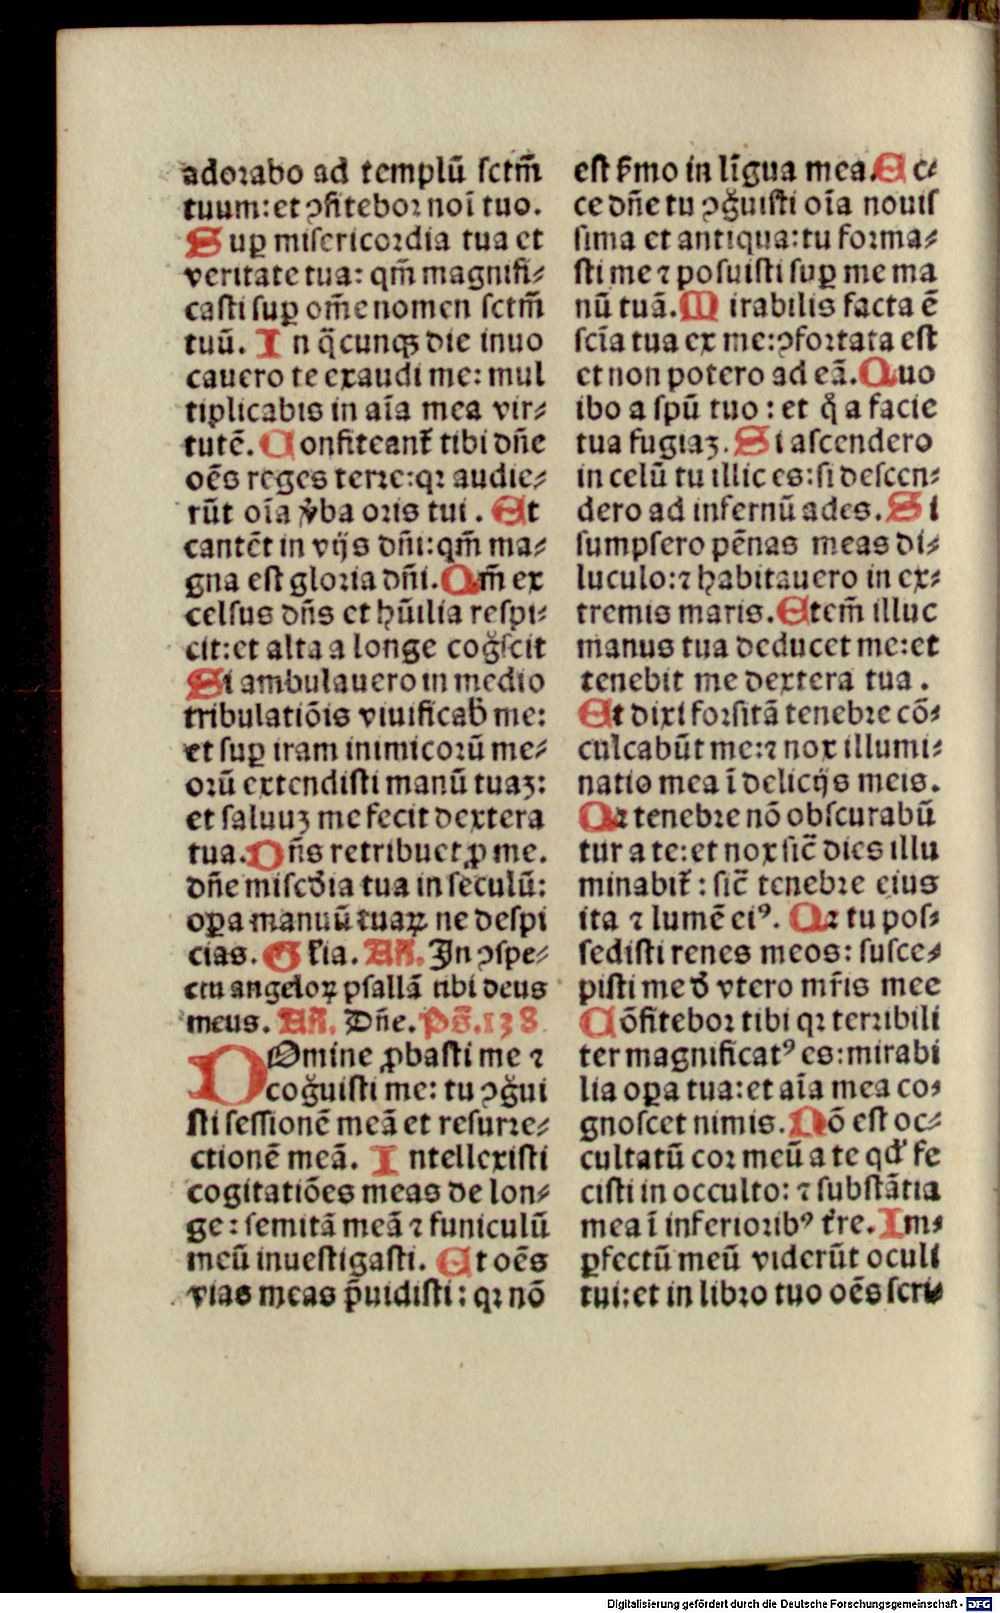 adorabo ad templū sctm̄
tuum: et ꝯfitebor noī tuo.
Suꝑ misericordia tua et
veritate tua: qm̄ magnifi⸗
casti suꝑ om̄e nomen sctm̄
tuū. In q̄cunqꝫ die inuo
cauero te exaudi me: mul
tiplicabis in aīa mea vir⸗
tutē. Confiteant᷑ tibi dn̄e
oēs reges terre: qꝛ audie⸗
rūt oīa v̓ba oris tui. Et
cantēt in vijs dn̄i: qm̄ ma⸗
gna est gloria dn̄i. Qm̄ ex
celsus dn̄s et hūilia respi⸗
cit: et alta a longe cog̊scit
Si ambulauero in medio
tribulatiōis viuificab̄ me:
et suꝑ iram inimicorū me⸗
orū extendisti manū tuaꝫ:
et saluuꝫ me fecit dextera
tua. Dn̄s retribuet ꝓ me.
dn̄e misc̄dia tua in seculū:
oꝑa manuū tuaꝝ ne despi
cias. Gl̓ia. Añ. In ꝯspe⸗
ctu angeloꝝ psallā tibi deus
meus. Añ. Dn̄e. Ps̄. 138
DOmine ꝓbasti me ⁊
cog̊uisti me: tu ꝯg̊ui
sti sessionē meā et resurre⸗
ctionē meā. Intellexisti
cogitatiōes meas de lon⸗
ge: semitā meā ⁊ funiculū
meū inuestigasti. Et oēs
vias meas p̄uidisti: qꝛ nō
est s̓mo in līgua mea. Ec⸗
ce dn̄e tu ꝯg̊uisti oīa nouis
sima et antiqua: tu forma⸗
sti me ⁊ posuisti suꝑ me ma
nū tuā. Mirabilis facta ē
scīa tua ex me: ꝯfortata est
et non potero ad eā. Quo
ibo a spū tuo: et q̊ a facie
tua fugiaꝫ. Si ascendero
in celū tu illic es: si descen⸗
dero ad infernū ades. Si
sumpsero pēnas meas di⸗
luculo: ⁊ habitauero in ex⸗
tremis maris. Etem̄ illuc
manus tua deducet me: et
tenebit me dextera tua.
Et dixi forsitā tenebre cō⸗
culcabūt me: ⁊ nox illumi⸗
natio mea ī delicijs meis.
Qꝛ tenebre nō obscurabū
tur a te: et nox sic̄ dies illu
minabit᷑: sic̄ tenebre eius
ita ⁊ lumē eiꝰ. Qꝛ tu pos⸗
sedisti renes meos: susce⸗
pisti me d̓ vtero mr̄is mee
Cōfitebor tibi qꝛ terribili
ter magnificatꝰ es: mirabi
lia oꝑa tua: et aīa mea co⸗
gnoscet nimis. Nō est oc⸗
cultatū cor meū a te qd̓ fe
cisti in occulto: ⁊ substātia
mea ī inferioribꝰ t̓re. Im⸗
ꝑfectū meū viderūt oculi
tui: et in libro tuo oēs scri⸗
Digitalisierung gefördert durch die Deutsche Forschungsgemeinschaft - DFG